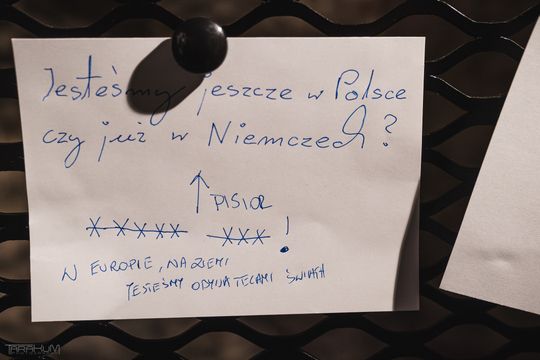 Jesteśmy jeszcze w Polsce
czy już w Niemczech?
↑ PISIOR
XXXXX XXX!
W EUROPIE, NA ZIEMI
JESTEŚMY OBYWATELAMI ŚWIATA
TARAKUM